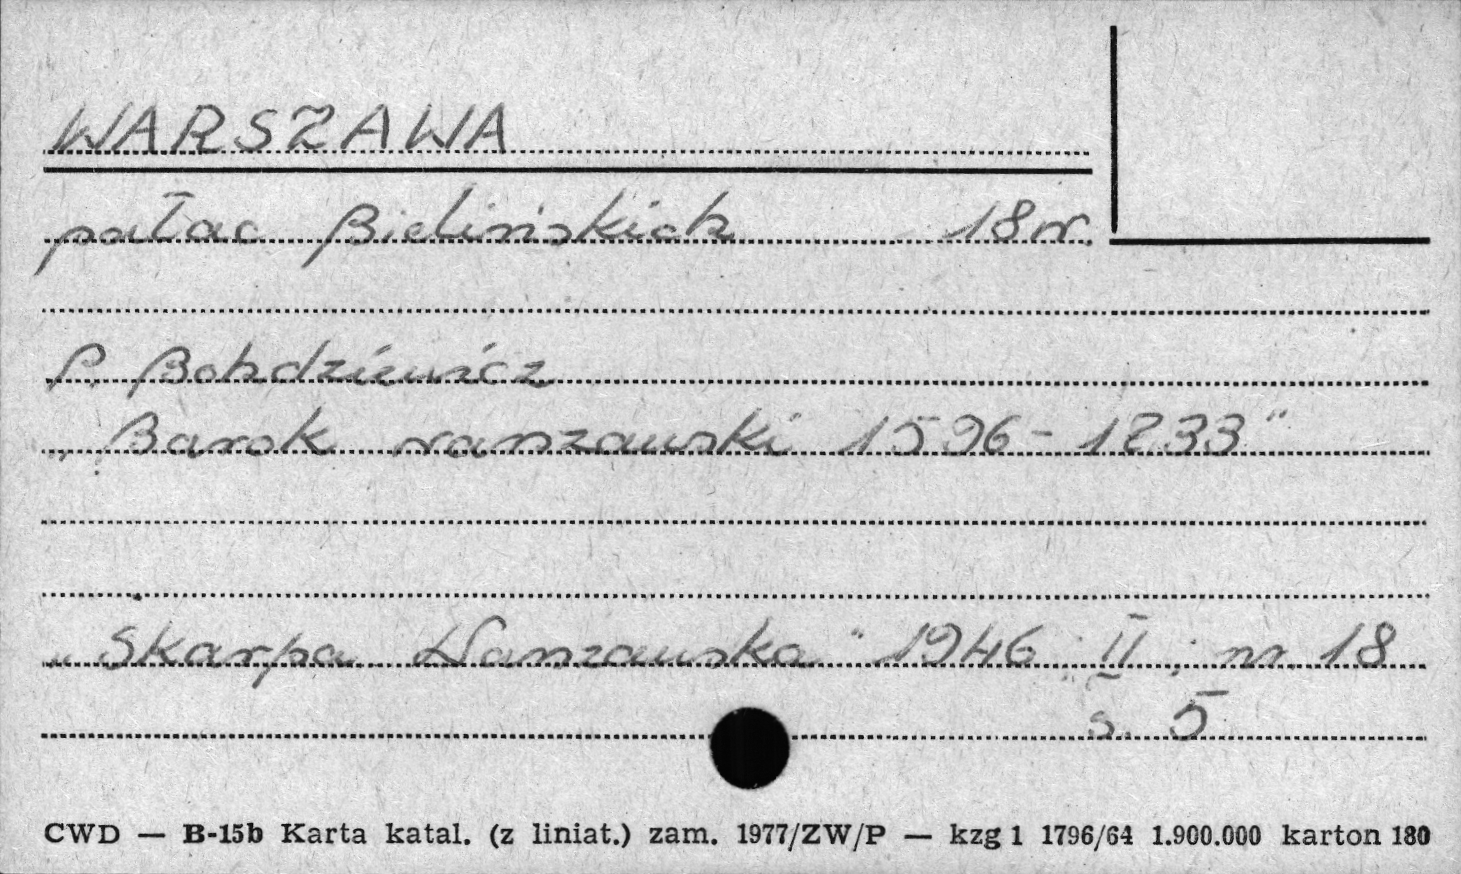 WARSZAWA
pałac Bielińskich 18 w.
P. Bohdziewicz
„Barok warszawski 1596-1733"
„Skarpa Warszawska" 1946 II; nr. 18
s. 5
CWD — B-15b Karta katal. (z liniat.) zam. 1977/ZW/P — kzg 1 1796/64 1.900.000 karton 180